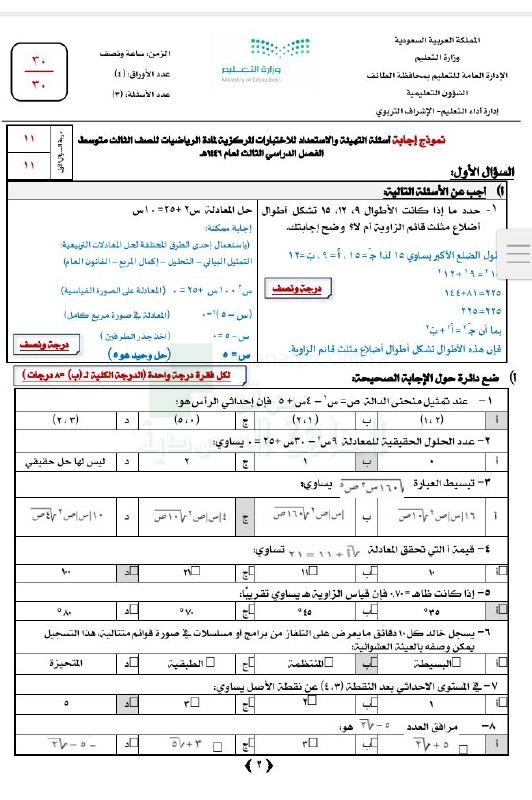 المملكة العربية السعودية
وزارة التعليم
الإدارة العامة للتعليم بمحافظة الطائف
الشؤون التعليمية
إدارة أداء التعليم- الإشراف التربوي
وزارة التعليم
Ministry of Education
الزمن: ساعة ونصف
عدد الأوراق: (٤)
عدد الأسئلة: (٣)
٣٠
٣٠
نموذج إجابة أسئلة التهيئة والاستعداد للاختبارات المركزية لمادة الرياضيات للصف الثالث متوسط
الفصل الدراسي الثالث لعام ١٤٤٦هـ
١١
١١
السؤال الأول:
أ) أجب عن الأسئلة التالية:
١- حدد ما إذا كانت الأطوال ٩، ١٢، ١٥ تشكل أطوال
أضلاع مثلث قائم الزاوية أم لا؟ وضح إجابتك.
طول الضلع الأكبر يساوي ١٥ لذا جـ = ١٥، أ = ٩، ب = ١٢
١٥² = ٩² + ١٢²
٢٢٥ = ٨١ + ١٤٤
٢٢٥ = ٢٢٥
بما أن جـ² = أ² + ب²
فإن هذه الأطوال تشكل أطوال أضلاع مثلث قائم الزاوية.
درجة ونصف
حل المعادلة س² + ٢٥ = ١٠س
إجابة ممكنة:
(باستعمال إحدى الطرق المختلفة لحل المعادلات التربيعية:
التمثيل البياني – التحليل – إكمال المربع – القانون العام)
س² - ١٠س + ٢٥ = ٠ (المعادلة على الصورة القياسية)
(س – ٥)² = ٠ (المعادلة في صورة مربع كامل)
س – ٥ = ٠ (أخذ جذر الطرفين)
س = ٥ (حل وحيد هو ٥)
درجة ونصف
أ) ضع دائرة حول الإجابة الصحيحة:
لكل فقرة درجة واحدة (الدرجة الكلية لـ (ب) = ٨ درجات)
١- عند تمثيل منحنى الدالة ص = س² – ٤س + ٥ فإن إحداثي الرأس هو:
أ (١،٢) ب (٢،١) ج (٥،٠) د (٢،٣)
٢- عدد الحلول الحقيقية للمعادلة ٩س² – ٣٠س + ٢٥ = ٠ يساوي:
أ ٠ ب ١ ج ٢ د ليس لها حل حقيقي
٣- تبسيط العبارة √١٦٠س²ص⁵ يساوي:
أ ١٦|س|ص²√١٠ص ب |س|ص²√١٦٠ص ج ٤|س|ص²√١٠ص د ١٠|س|ص²√٤ص
٤- قيمة أ التي تحقق المعادلة √أ + ١١ = ٢١ تساوي:
أ ١٠ ب ١١ ج ٢١ د ١٠٠
٥- إذا كانت ظاهـ = ٠.٧٠ فإن قياس الزاوية هـ يساوي تقريبًا:
أ ٣٥° ب ٤٥° ج ٧٠° د ٨٠°
٦- يسجل خالد كل ١٠ دقائق ما يعرض على التلفاز من برامج أو مسلسلات في صورة قوائم متتالية، هذا التسجيل
يمكن وصفه بالعينة العشوائية:
أ البسيطة ب المنتظمة ج الطبقية د المتحيزة
٧- في المستوى الاحداثي بعد النقطة (٤،٣) عن نقطة الأصل يساوي:
أ ١ ب ٢ ج ٣ د ٥
٨- مرافق العدد ٥ – √٢ هو:
أ ٥ + √٢ ب ٣ ج ٣ + √٥ د -٥ – √٢
(٢)